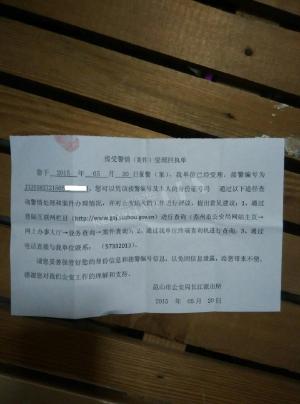 接受警情(案件)受理回执单
您于 2015 年 05 月 20 日报警(案),我单位已经受理,接警编号为
,您可以凭该接警编号及本人的身份证号码 通过以下途径查
询警情处理和案件办理情况,并对公安机关的工作进行评议,提出意见建议:1,通过
登陆互联网栏目(http://www.gaj.suzhou.gov.cn)进行查询(苏州市公安局网站主页→
网上办事大厅→业务查询→案件查询);2,通过我单位终端查询机进行查询;3,通过
电话直接与我单位联系。(57332013)。
请您妥善保管好您的身份信息和接警编号信息,以免因信息泄露,给您带来不便,
感谢您对我们公安工作的理解和支持。
昆山市公安局长江派出所
2015 年 05月 20日